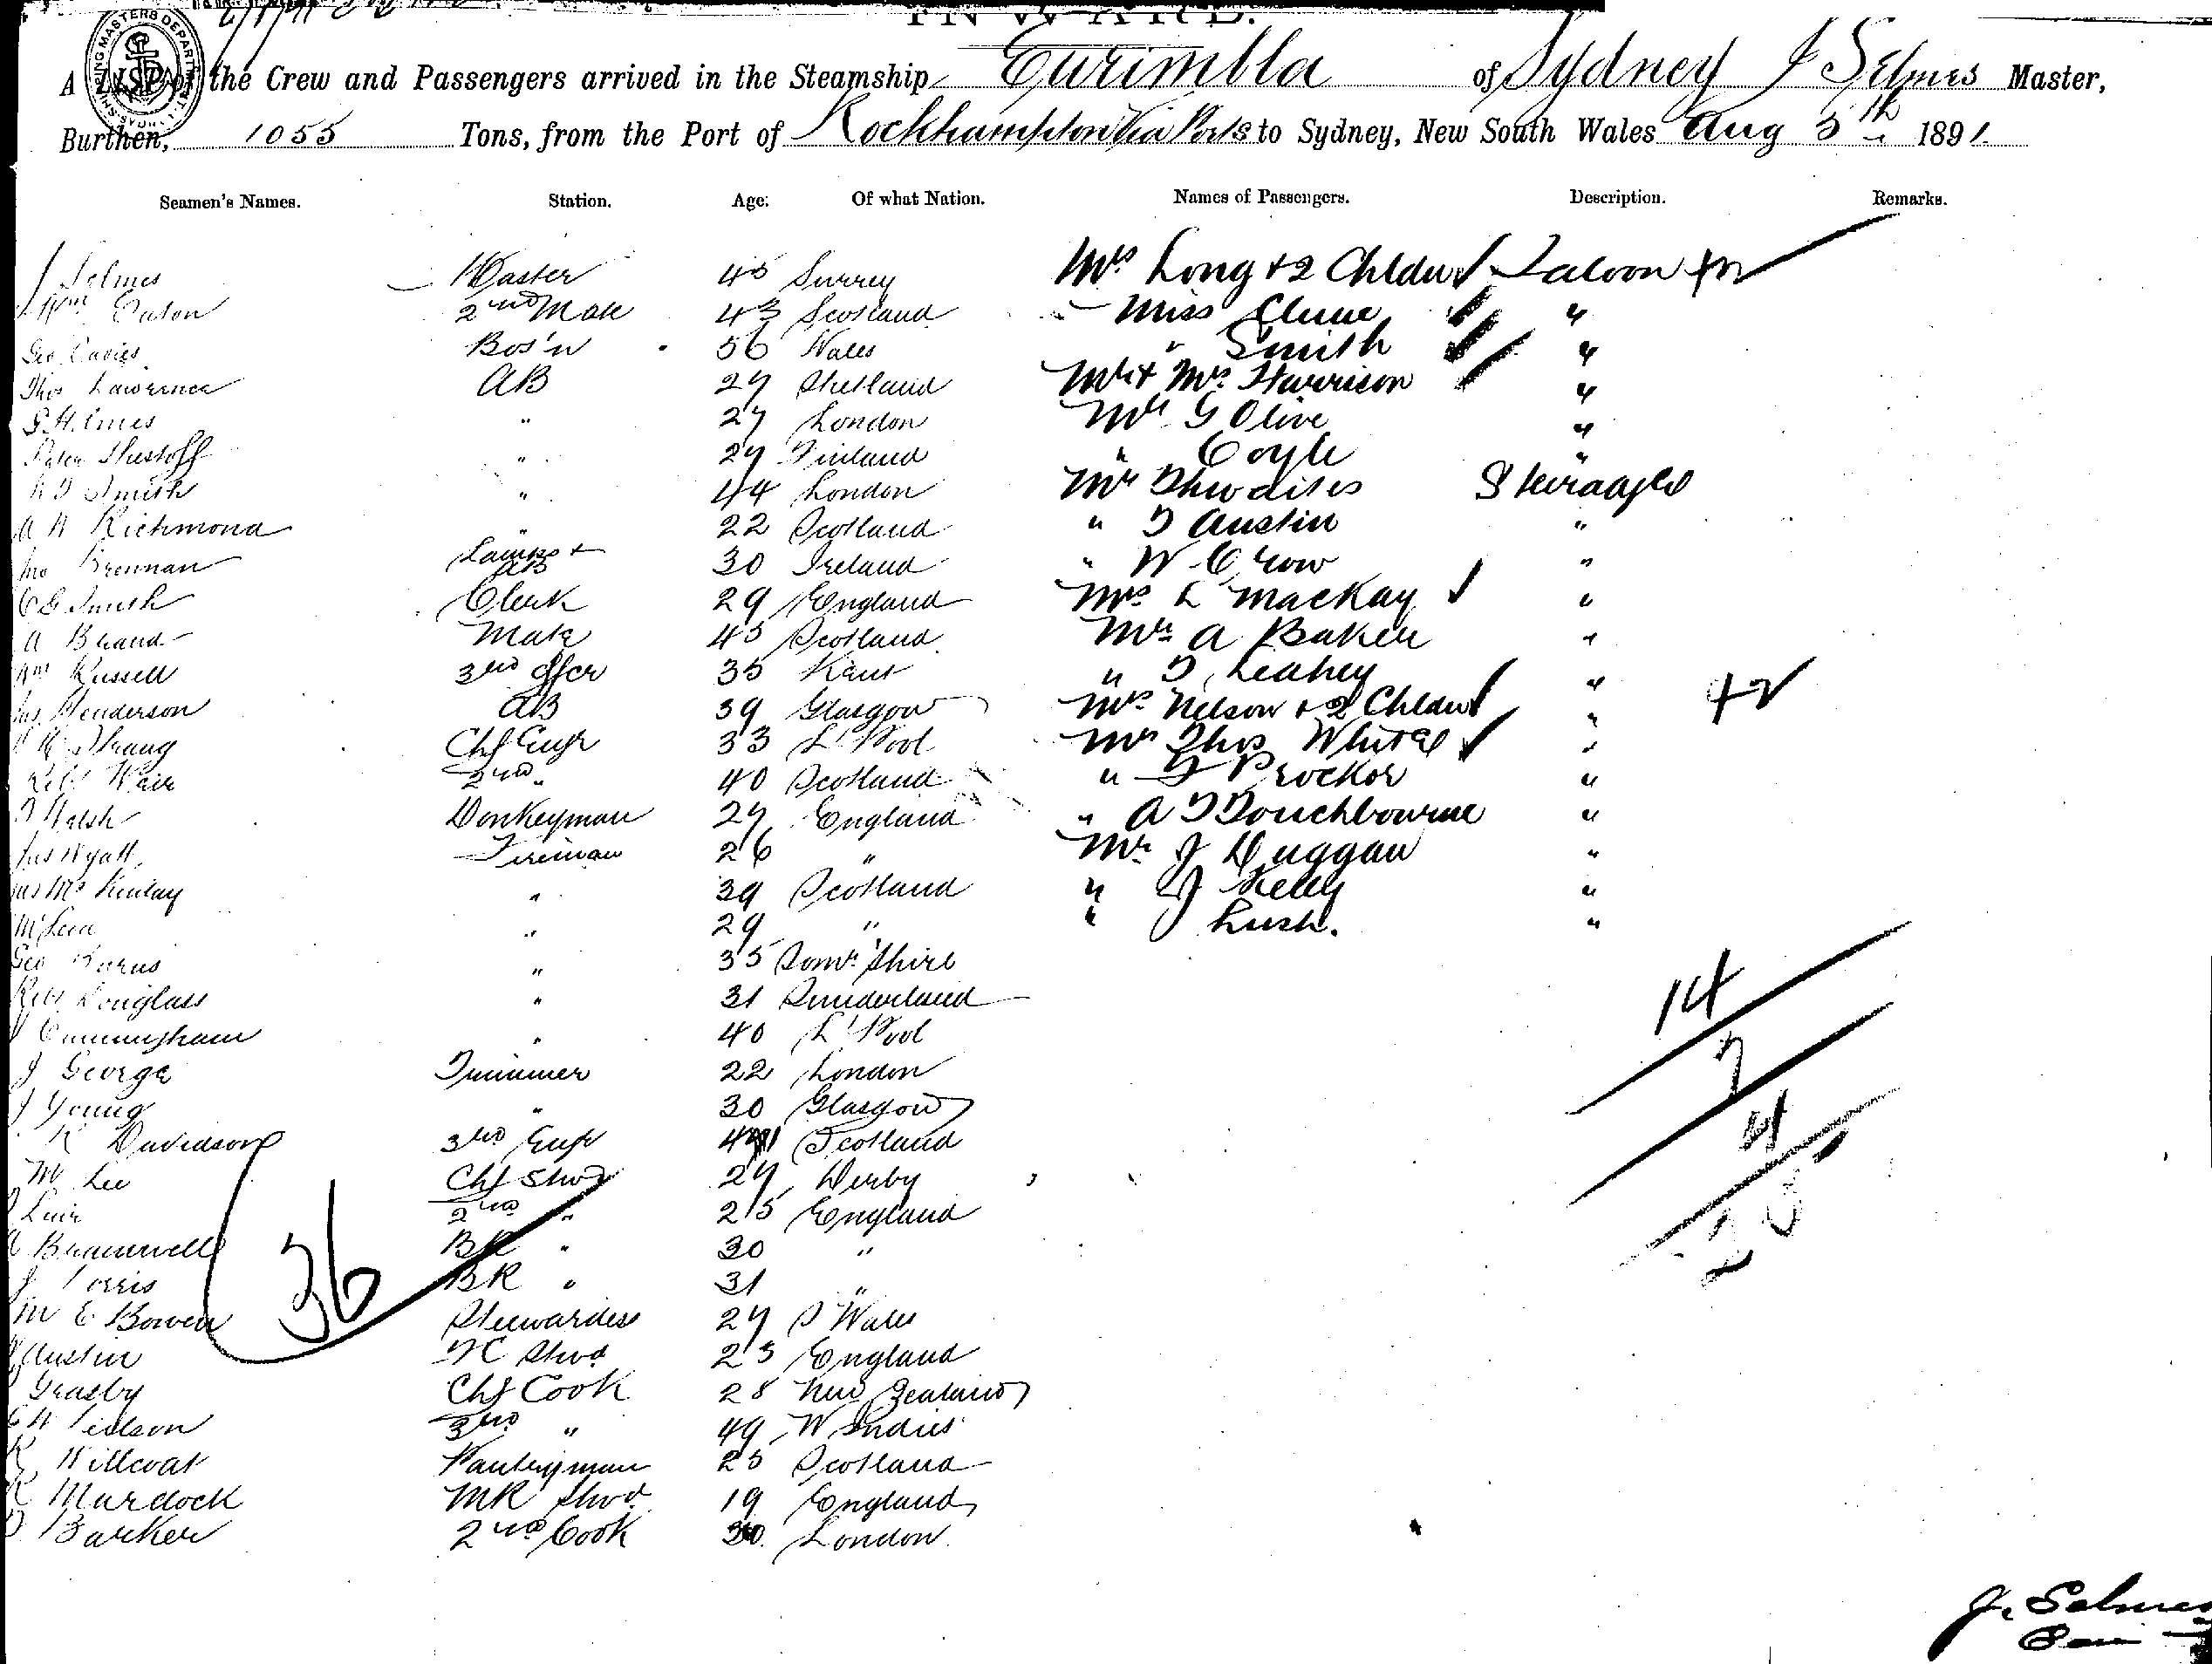 INWARD.
A LIST of the Crew and Passengers arrived in the Steamship Eurimbla of Sydney J Selmes Master,
Burthen, 1055 Tons, from the Port of Rockhampton Via Ports to Sydney, New South Wales Aug 5th 1891.
Seamen's Names. Station. Age. Of what Nation. Names of Passengers. Description. Remarks.
J Selmes Master 45 Surrey Mrs Long + 2 Childn Saloon
Wm Eaton 2nd Mate 43 Scotland Miss Clune "
Geo Davies Bos'n 56 Wales " Smith "
Thos Lawrence AB 27 Shetland Mr + Mrs Harrison "
G Holmes " 27 London Mr G Olive "
Peter " 27 Finland " Coyle "
Smith " 44 London Mr Thwaites Steerage
A Richmond " 22 Scotland " T Austin "
Jno Brennan Lamps + AB 30 Ireland " W Crow "
C G Smith Clerk 29 England Mrs L Mackay "
A Brand Mate 45 Scotland Mr A Baker "
Wm Russell 3rd Offcr 35 Kent " T Leahey "
Jas Henderson AB 39 Glasgow Mrs Nelson + 2 Childn "
Strang Chf Engr 33 L'Pool Mr Thos White "
Robt Weir 2nd " 40 Scotland " Prockor "
J Walsh Donkeyman 27 England " A T Touchbourne "
Jas Wyatt Fireman 26 " Mr J Duggan "
Jas McKinlay " 39 Scotland " J Kelly "
McLean " 29 " " J Lush. "
Geo Burns " 35 Somr'shire
Robt Douglass " 31 Sunderland
Cunningham " 40 L'Pool
J George Trimmer 22 London
J Young " 30 Glasgow
R Davidson 3rd Engr Scotland
M Lee Chf Stwd 27 Derby
2nd " 25 England
Bramwell BR " 30 "
J BR " 31 "
M E Bowen Stewardess 27 S Wales
Austin FC Stwd 23 England
Grasby Chf Cook 28 New Zealand
3rd " 49 W Indies
Willcoat Pantryman 25 Scotland
Murdock MR Stwd 19 England
Barker 2nd Cook 30 London
36
14
7
4
25
J. Selmes